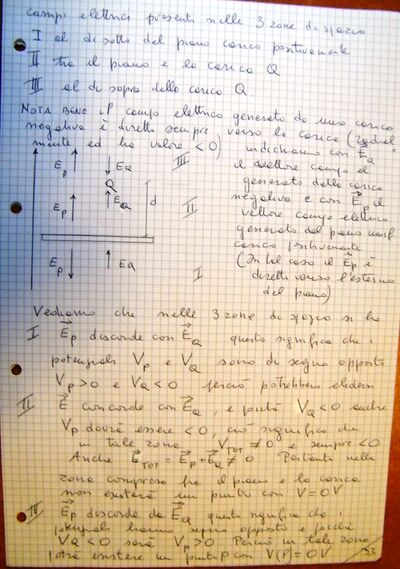 campi elettrici presenti nelle 3 zone di spazio
I al di sotto del piano carico positivamente
II tra il piano e la carica Q
III al di sopra della carica Q
NOTA BENE il campo elettrico generato da una carica
negativa è diretto sempre verso la carica (radial=
mente ed ha valore < 0) indichiamo con E⃗Q
il vettore campo el.
generato dalla carica
negativa e con E⃗p il
vettore campo elettrico
generato dal piano unif.
carico positivamente
(In tal caso il E⃗p è
diretto verso l'esterno
del piano)
III
Ep EQ
Q
Ep EQ d
II
Ep EQ
I
Vediamo che nelle 3 zone di spazio si ha
I E⃗p discorde con E⃗Q questo significa che i
potenziali Vp e VQ sono di segno opposto
Vp > 0 e VQ < 0 perciò potrebbero elidersi
II E⃗ concorde con E⃗Q, e poiché VQ < 0 anche
Vp dovrà essere < 0, ciò significa che
in tale zona VTOT ≠ 0 e sempre < 0
Anche E⃗TOT = E⃗p + E⃗Q ≠ 0 Pertanto nella
zona compresa fra il piano e la carica
non esisterà un punto con V = 0V
III E⃗p discorde da E⃗Q questo significa che i
potenziali hanno segno opposto e poiché
VQ < 0 sarà Vp > 0 Perciò in tale zona
potrà esistere un punto P con V(P) = 0V